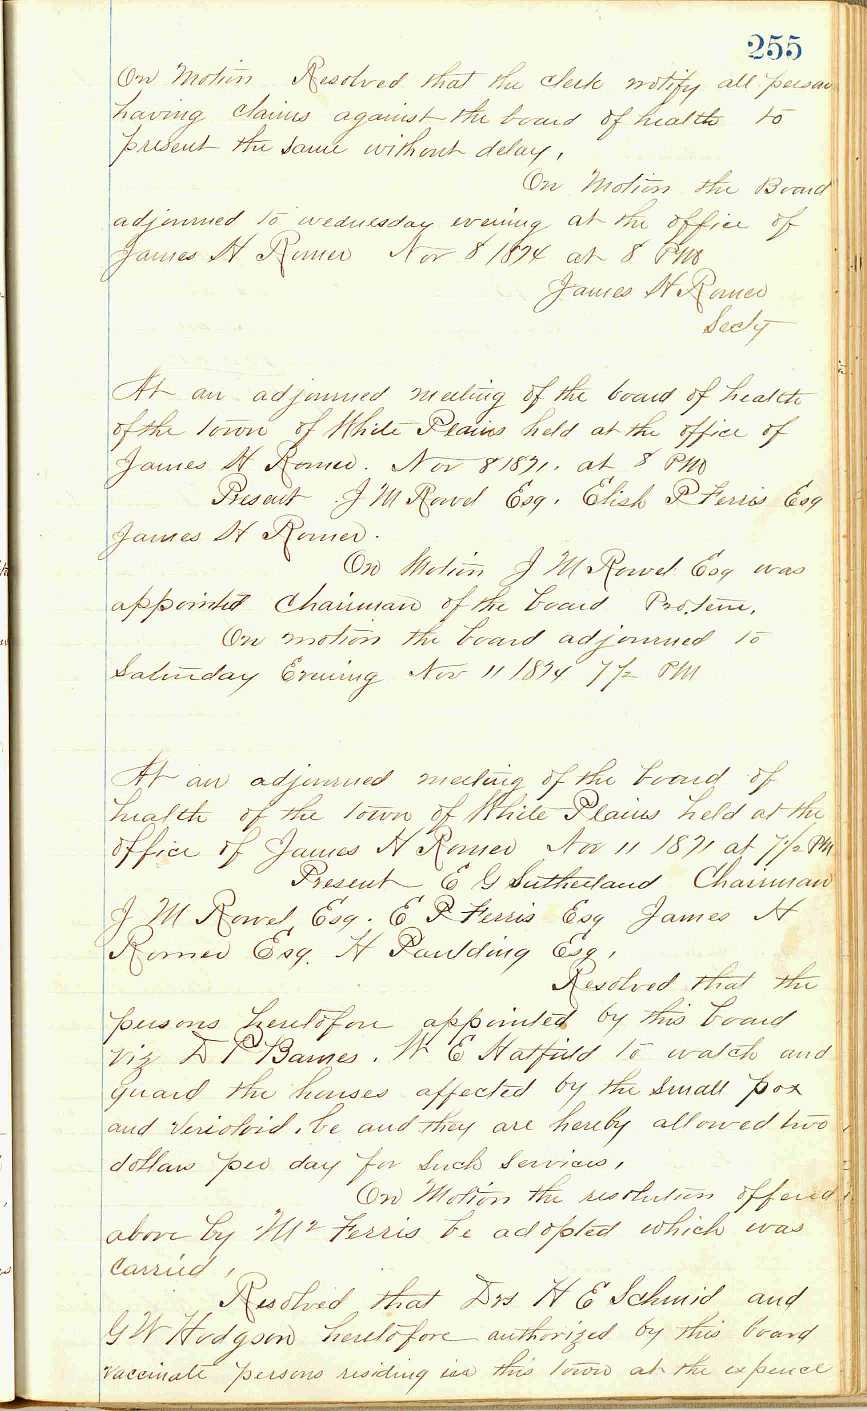 255
On Motion Resolved that the clerk notify all person
having claims against the board of health to
present the same without delay.
On Motion the Board
adjourned to wednesday evening at the office of
James H Romer Nov 8 1874 at 8 PM
James H Romer
Secty
At an adjourned meeting of the board of health
of the town of White Plains held at the office of
James H Romer. Nov 8 1871. at 8 PM
Present J M Rowel Esq. Elish P Ferris Esq
James H Romer.
On Motion J M Rowel Esq was
appointed Chairman of the board Pro.tem.
On motion the board adjourned to
Saturday Evening Nov 11 1874 7 1/2 PM
At an adjourned meeting of the board of
health of the town of White Plains held at the
office of James H Romer Nov 11 1871 at 7 1/2 PM
Present E G Sutherland Chairman
J M Rowel Esq. E P Ferris Esq James H
Romer Esq. H Paulding Esq.
Resolved that the
persons heretofore appointed by this board
viz D P Barnes. W E Hatfield to watch and
guard the houses affected by the small pox
and verioloid. be and they are hereby allowed two
dollars per day for such services.
On Motion the resolution offered
above by Mr Ferris be adopted which was
carried.
Resolved that Drs H E Schmid and
G W Hodgson heretofore authorized by this board
vaccinate persons residing in this town at the expence